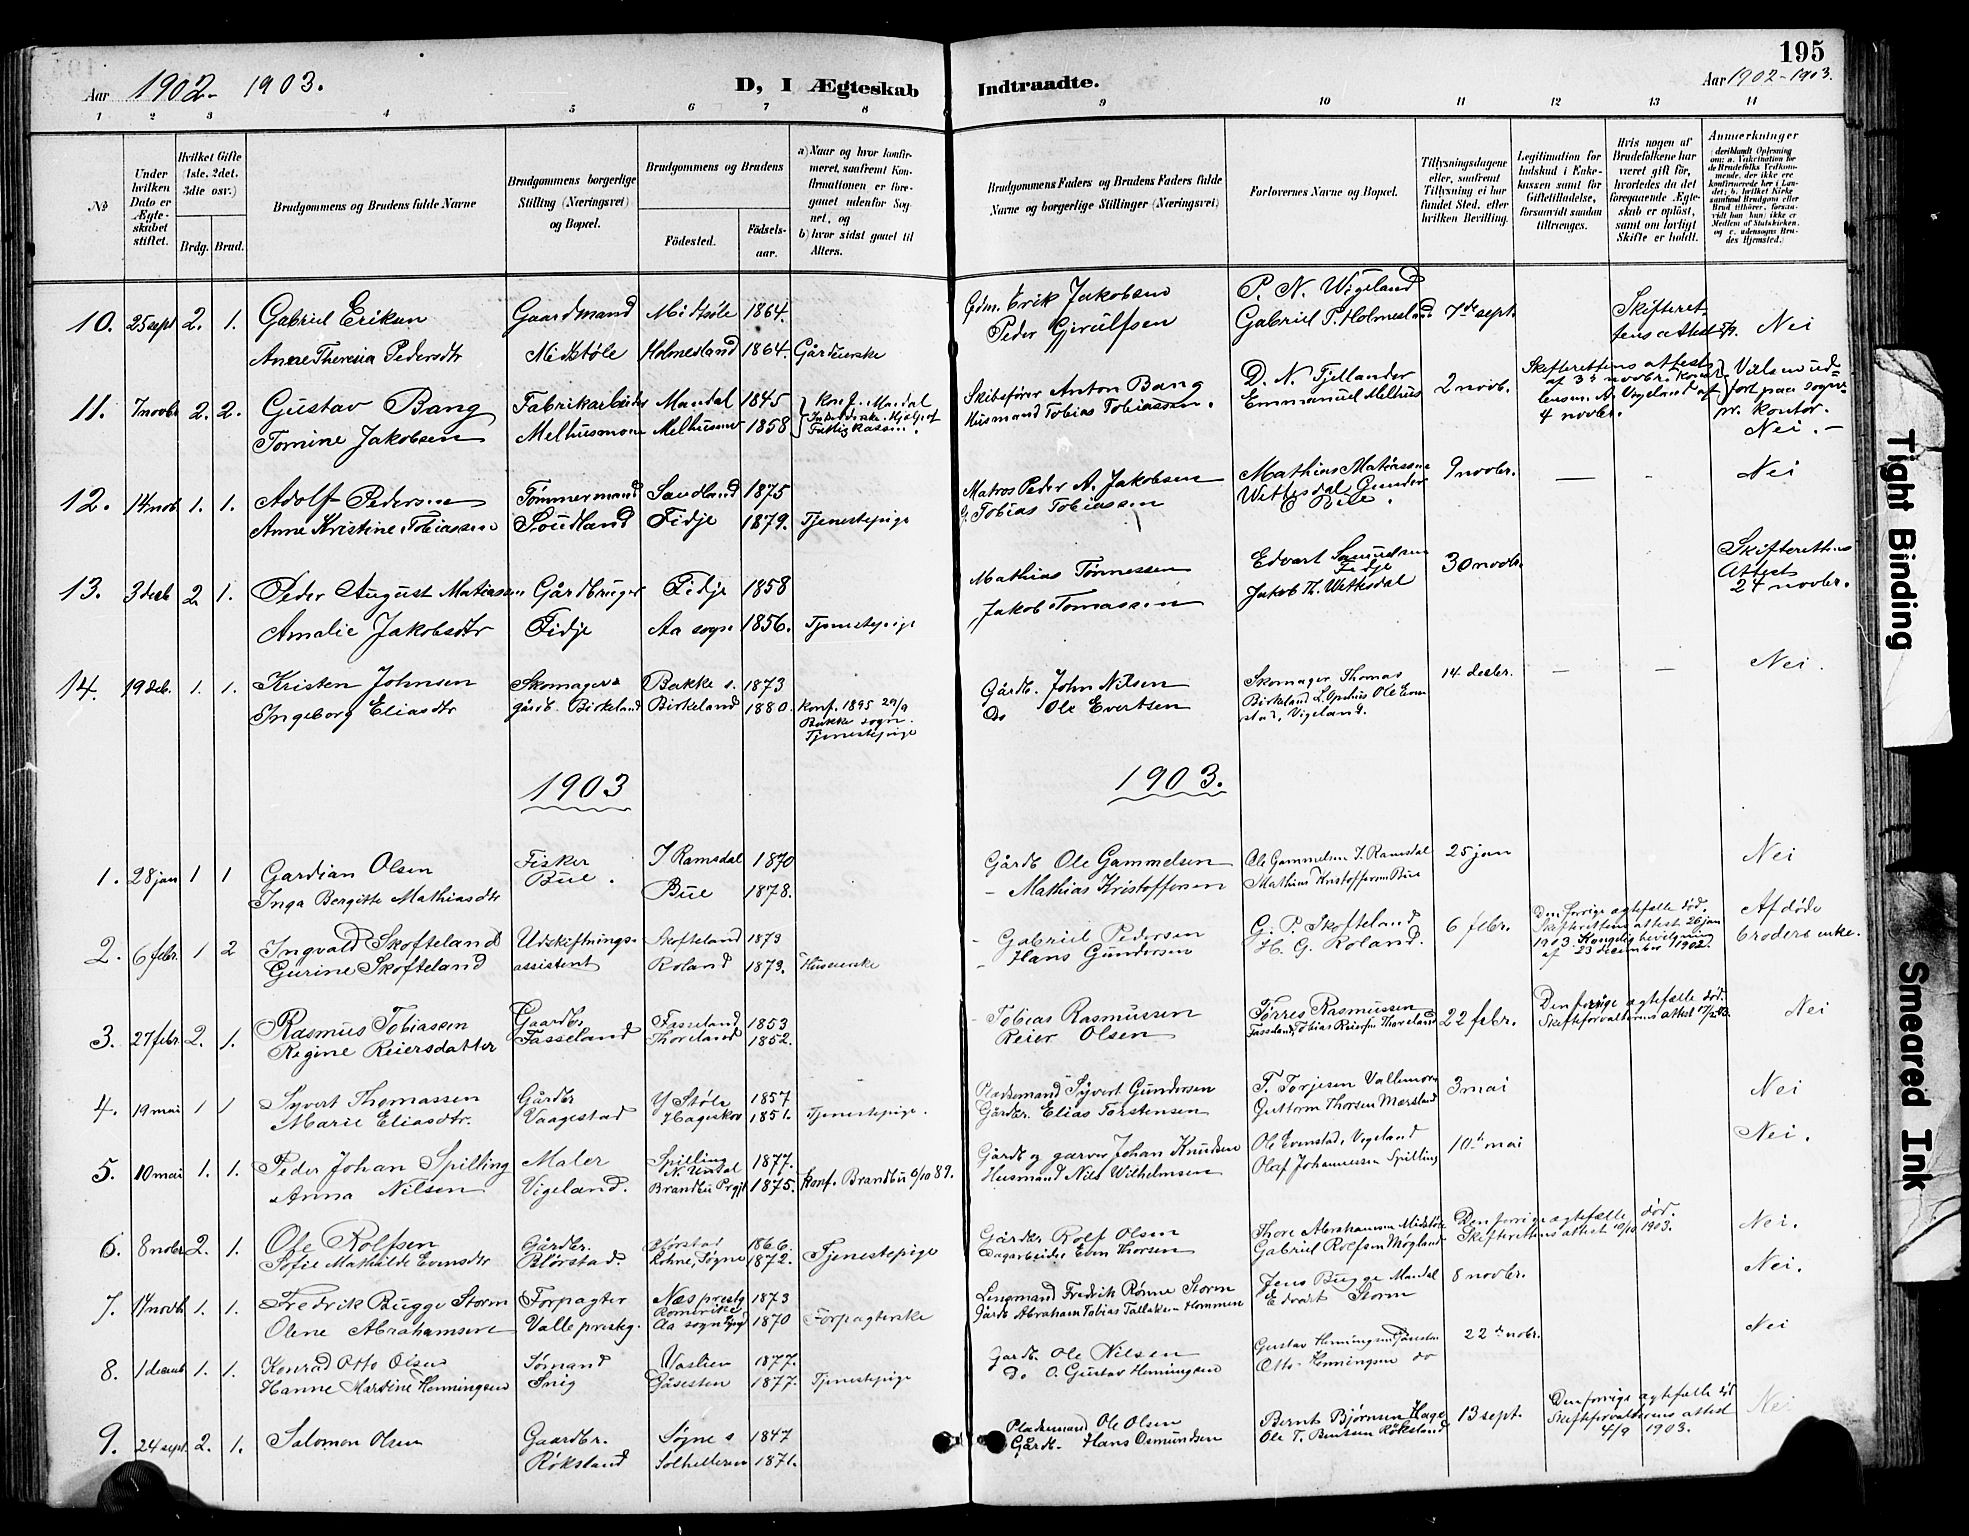 195
Aar 1902-1903.
D, I Ægteskab Indtraadte.
Aar 1902-1903.
1 2 3 4 5 6 7 8 9 10 11 12 13 14
№
Under hvilken Dato er Ægteskabet stiftet.
Hvilket Gifte (1ste, 2det, 3die osv.)
Brdg. Brud.
Brudgommens og Brudens fulde Navne
Brudgommens borgerlige Stilling (Næringsvei) og Bopæl.
Brudgommens og Brudens
Födested.
Födselsaar.
a) Naar og hvor konfirmeret, saafremt Konfirmationen er foregaaet udenfor Sognet, og
b) hvor sidst gaaet til Alters.
Brudgommens Faders og Brudens Faders fulde Navne og borgerlige Stillinger (Næringsvei)
Forlovernes Navne og Bopæl.
Tillysningsdagene eller, saafremt Tillysning ei har fundet Sted, efter hvilken Bevilling.
Legitimation for Indskud i Enkekassen samt for Giftetilladelse, forsaavidt saadan tiltrænges.
Hvis nogen af Brudefolkene har været gift før, hvorledes da det foregaaende Ægteskab er oplöst, samt om lovligt Skifte er holdt.
Anmerkninger
10. 25 sept 2. 1. Gabriel Eriksen Gaardmand Midtsöle 1864. Gdm. Erik Jakobsen P. N. Vigeland 7de sept. Skifteret Nei
Anne Theresia Pedersdtr Midtstöle Holmesland 1864. Gårdeierske Peder Gjerulfsen Gabriel P. Holmesland
11. 7 novbr 2. 2. Gustav Bang Fabrikarbeider Mandal 1845 konf. Mandal Skibsförer Anton Bang D. N. Fjellander 2 novb. Skifterettens attest af 3d novbr.
Tomine Jakobsen Melhusmoen Melhusmoen 1858 Husmand Tobias Tobiassen. Emmanuel Melhus 4 novbr. Nei.
12. 14 nob 1. 1. Adolf Pedersen Tömmermand Saudland 1875 Matros Peder A. Jakobsen Mathias Matiassen 9 novbr. — - Nei
Anne Kristine Tobiassen Soudland Fidje 1879. Tjenestepige G. Tobias Tobiassen
13. 3 decb 2 1. Peder August Matiassen Gårdbruger Fidje 1858 Mathias Tönnessen Edvart Samuelsen Fidje 30 novbr. Skifterettens Attest 24 novbr.
Amalie Jakobsdtr Fidje Aa sogn 1856. Tjenestepige Jakob Tomassen Jakob Th. Wetksdal
14. 19 deb. 1. 1. Kristen Johnsen Skomager & Bakke s. 1873 Gårdb. John Nilsen Skomager Thomas 14 decbr. — — Nei.
Ingeborg Eliasdtr gårdb. Birkeland Birkeland 1880. konf. 1895 29/9 Bakke sogn. Tjenestepige Do Ole Evertsen Birkeland Ole Even stad, Vigeland.
1903 1903.
1. 28 jan 1 1 Gardian Olsen Fisker Bue. I Ramsdal 1870 Gårdb Ole Gammelsen Ole Gammelsen I. Ramsdal 25 jan Nei
Inga Bergitte Mathiasdtr Bue 1878. - Mathias Kristoffersen Mathias Kristoffersen Bue
2. 6 febr. 1 2 Ingvald Skofteland Udskiftnings- Skofteland 1879 - Gabriel Pedersen G. P. Skofteland 6 febr. Den forrige ægtefælle död. Skifterettens attest 26 jan 1903. Kongelig bevilgning af 23 december 1902. Afdöde broders enke.
Gurine Skofteland assistent Roland 1879. Huseierske - Hans Gundersen H. G. Roland.
3. 27 febr. 2. 1. Rasmus Tobiassen Gaardb. Fasseland 1853 - Tobias Rasmussen Törres Rasmussen 22 febr. Den forrige ægtefælle död. Skifteforvalterens attest Nei
Regine Reiersdatter Fasseland Thoreland 1852. Reier Olsen Fassland, Tobias Reiersen Thoreland
4. 19 mai 1 1 Syvert Thomassen Gårdbr Y Stöle 1857 Pladsmand Syvert Gundersen T. Torjesen Vallemoen 3 mai Nei
Marie Eliasdtr. Vaagestad Hageskov 1851. Tjenestepige. Gårdbr. Elias Torstensen Guttorm Thorsen Mærsland
5. 10 mai 1. 1. Peder Johan Spilling Maler Spilling N. Undal 1877. Gårdb og garver Johan Knudsen Ole Evenstad, Vigeland 10de mai Nei.
Anna Nilsen Vigeland. Brandbu Prgj. 1875. Konf. Brandbu 6/10 89. Husmand Nils Wilhelmsen Olaf Johannessen Spilling
6. 8 nobr 2. 1. Ole Rolfsen Gårdbr. Blörstad 1866. Gårdbr Rolf Olsen Thore Abrahamsen Midtstöl Den forrige ægtefælle död. Nei.
Sofie Mathilde Evensdtr Blörstad. Rohne, Sögne 1872. Tjenestepige Dagarbeider Even Thorsen Gabriel Rolfsen Mögland Skifterettens attest 10/10 1903.
7. 17 novb 1. 1. Fredrik Bugge Storm Forpagter Næs prestg Romerike 1873 Lensmand Fredrik Rönne Storm Jens Bugge Mandal 8 novbr. Nei.
Olene Abrahamsen Valle prestg. Aa sogn 1870 Forpagterske Gårdb Abraham Tobias Tallaksen Hommen Edvart Storm
8. 1 decemb 1. 1. Konrad Otto Olsen Sömand Vaslien 1877. Gårdb. Ole Nilsen Gustav Henningsen Gåsesten 22de nobr. Nei
Hanne Martine Henningsen Snig Gåsesten 1877. Tjenestepige Do O. Gustav Henningsen Otto Henningsen do
9. 24 sept. 2. 1. Salomon Olsen Gaardbr. Sögne s 1847 Pladsmand, Ole Olsen Bernt Björnsen Hage 13 sept. Den forrige ægtefælle död Skifteforvalterens attest 4/9 1903. Nei
Röksland Solhelleren 1871. Gårdb. Hans Osmundsen Ole T. Bentsen Röksland
Tight Binding
Smeared Ink